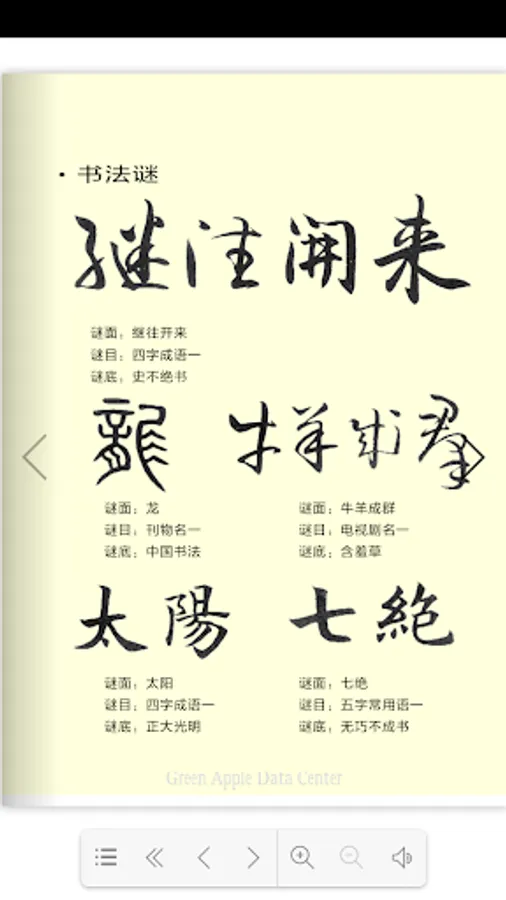 · 书法谜
继往開来
谜面：继往开来
谜目：四字成语一
谜底：史不绝书
龍
牛羊成群
谜面：龙
谜目：刊物名一
谜底：中国书法
谜面：牛羊成群
谜目：电视剧名一
谜底：含羞草
太陽
七絶
谜面：太阳
谜目：四字成语一
谜底：正大光明
谜面：七绝
谜目：五字常用语一
谜底：无巧不成书
Green Apple Data Center